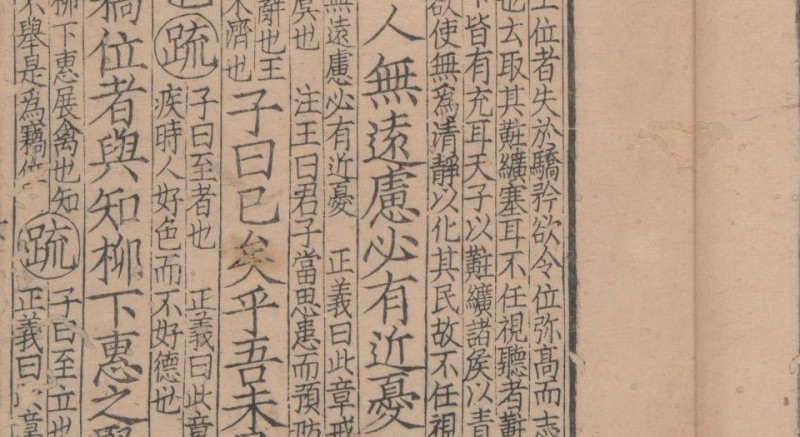 上位者失於驕矜欲令位弥高而志
也去取其黈纊塞耳不任視聽者黈
皆有充耳天子以黈纊諸矦以青
欲使無爲清靜以化其民故不任視
人無遠慮必有近憂
注王曰君子當思患而預防
無遠慮必有近憂 正義曰此章戒
虞也
子曰已矣乎吾未
辭也王
未濟也
疏
子曰至者也 正義曰此章
疾時人好色而不好德也
竊位者與知柳下惠之
柳下惠展禽也知
不舉是爲竊位
疏
子曰至立也
正義曰 章